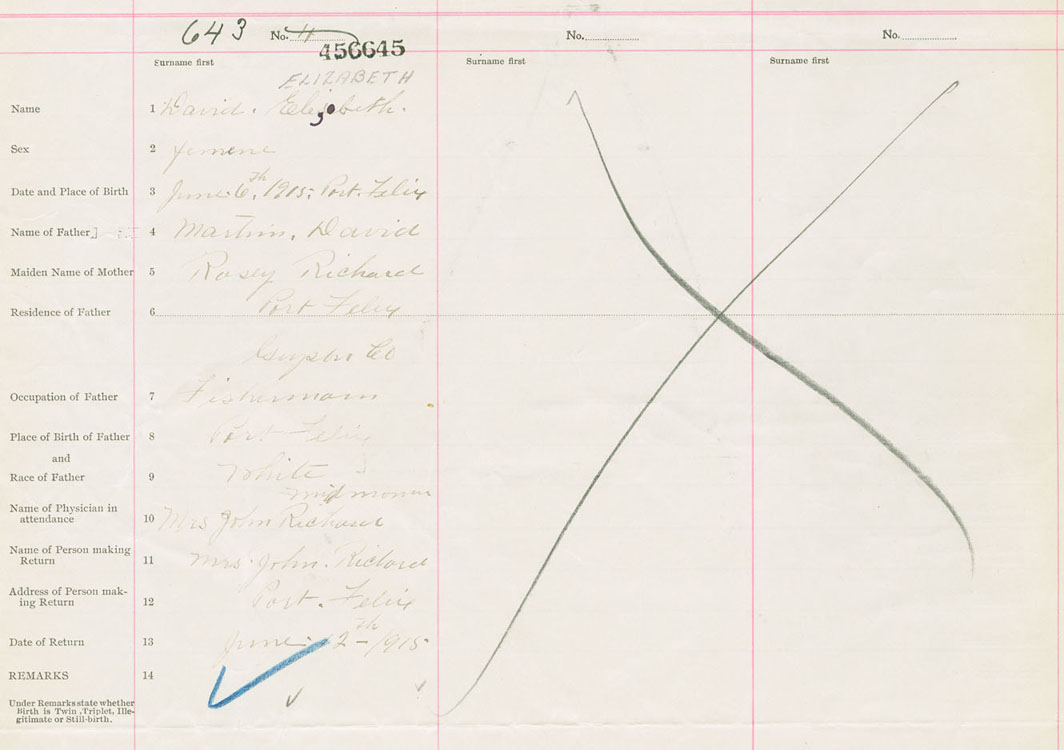 643 No. 4 No. No.
456645
Surname first Surname first Surname first
ELIZABETH
Name 1 David. Elizabeth.
Sex 2 femene
Date and Place of Birth 3 June 6th, 1915. Port. Felix
Name of Father 4 Martin, David
Maiden Name of Mother 5 Rosey Richard
Residence of Father 6 Port Felix
Co
Occupation of Father 7 Fishermain
Place of Birth of Father 8 Port Felix
and
Race of Father 9 White
Name of Physician in
attendance 10 Mrs John Richard
Name of Person making
Return 11 Mrs. John. Richard
Address of Person mak-
ing Return 12 Port. Felix
Date of Return 13 June 12th 1915
REMARKS 14
Under Remarks state whether
Birth is Twin, Triplet, Ille-
gitimate or Still-birth.